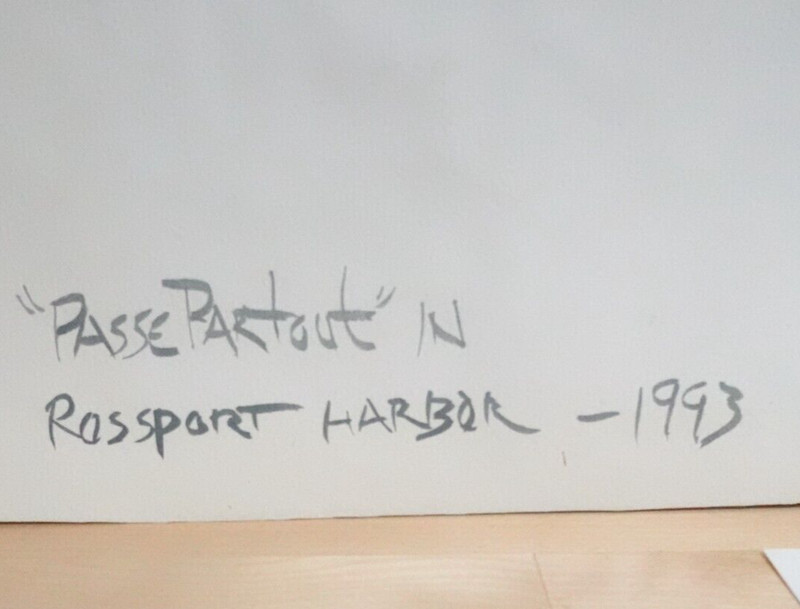 "PASSE PARTOUT" IN
ROSSPORT HARBOR - 1993